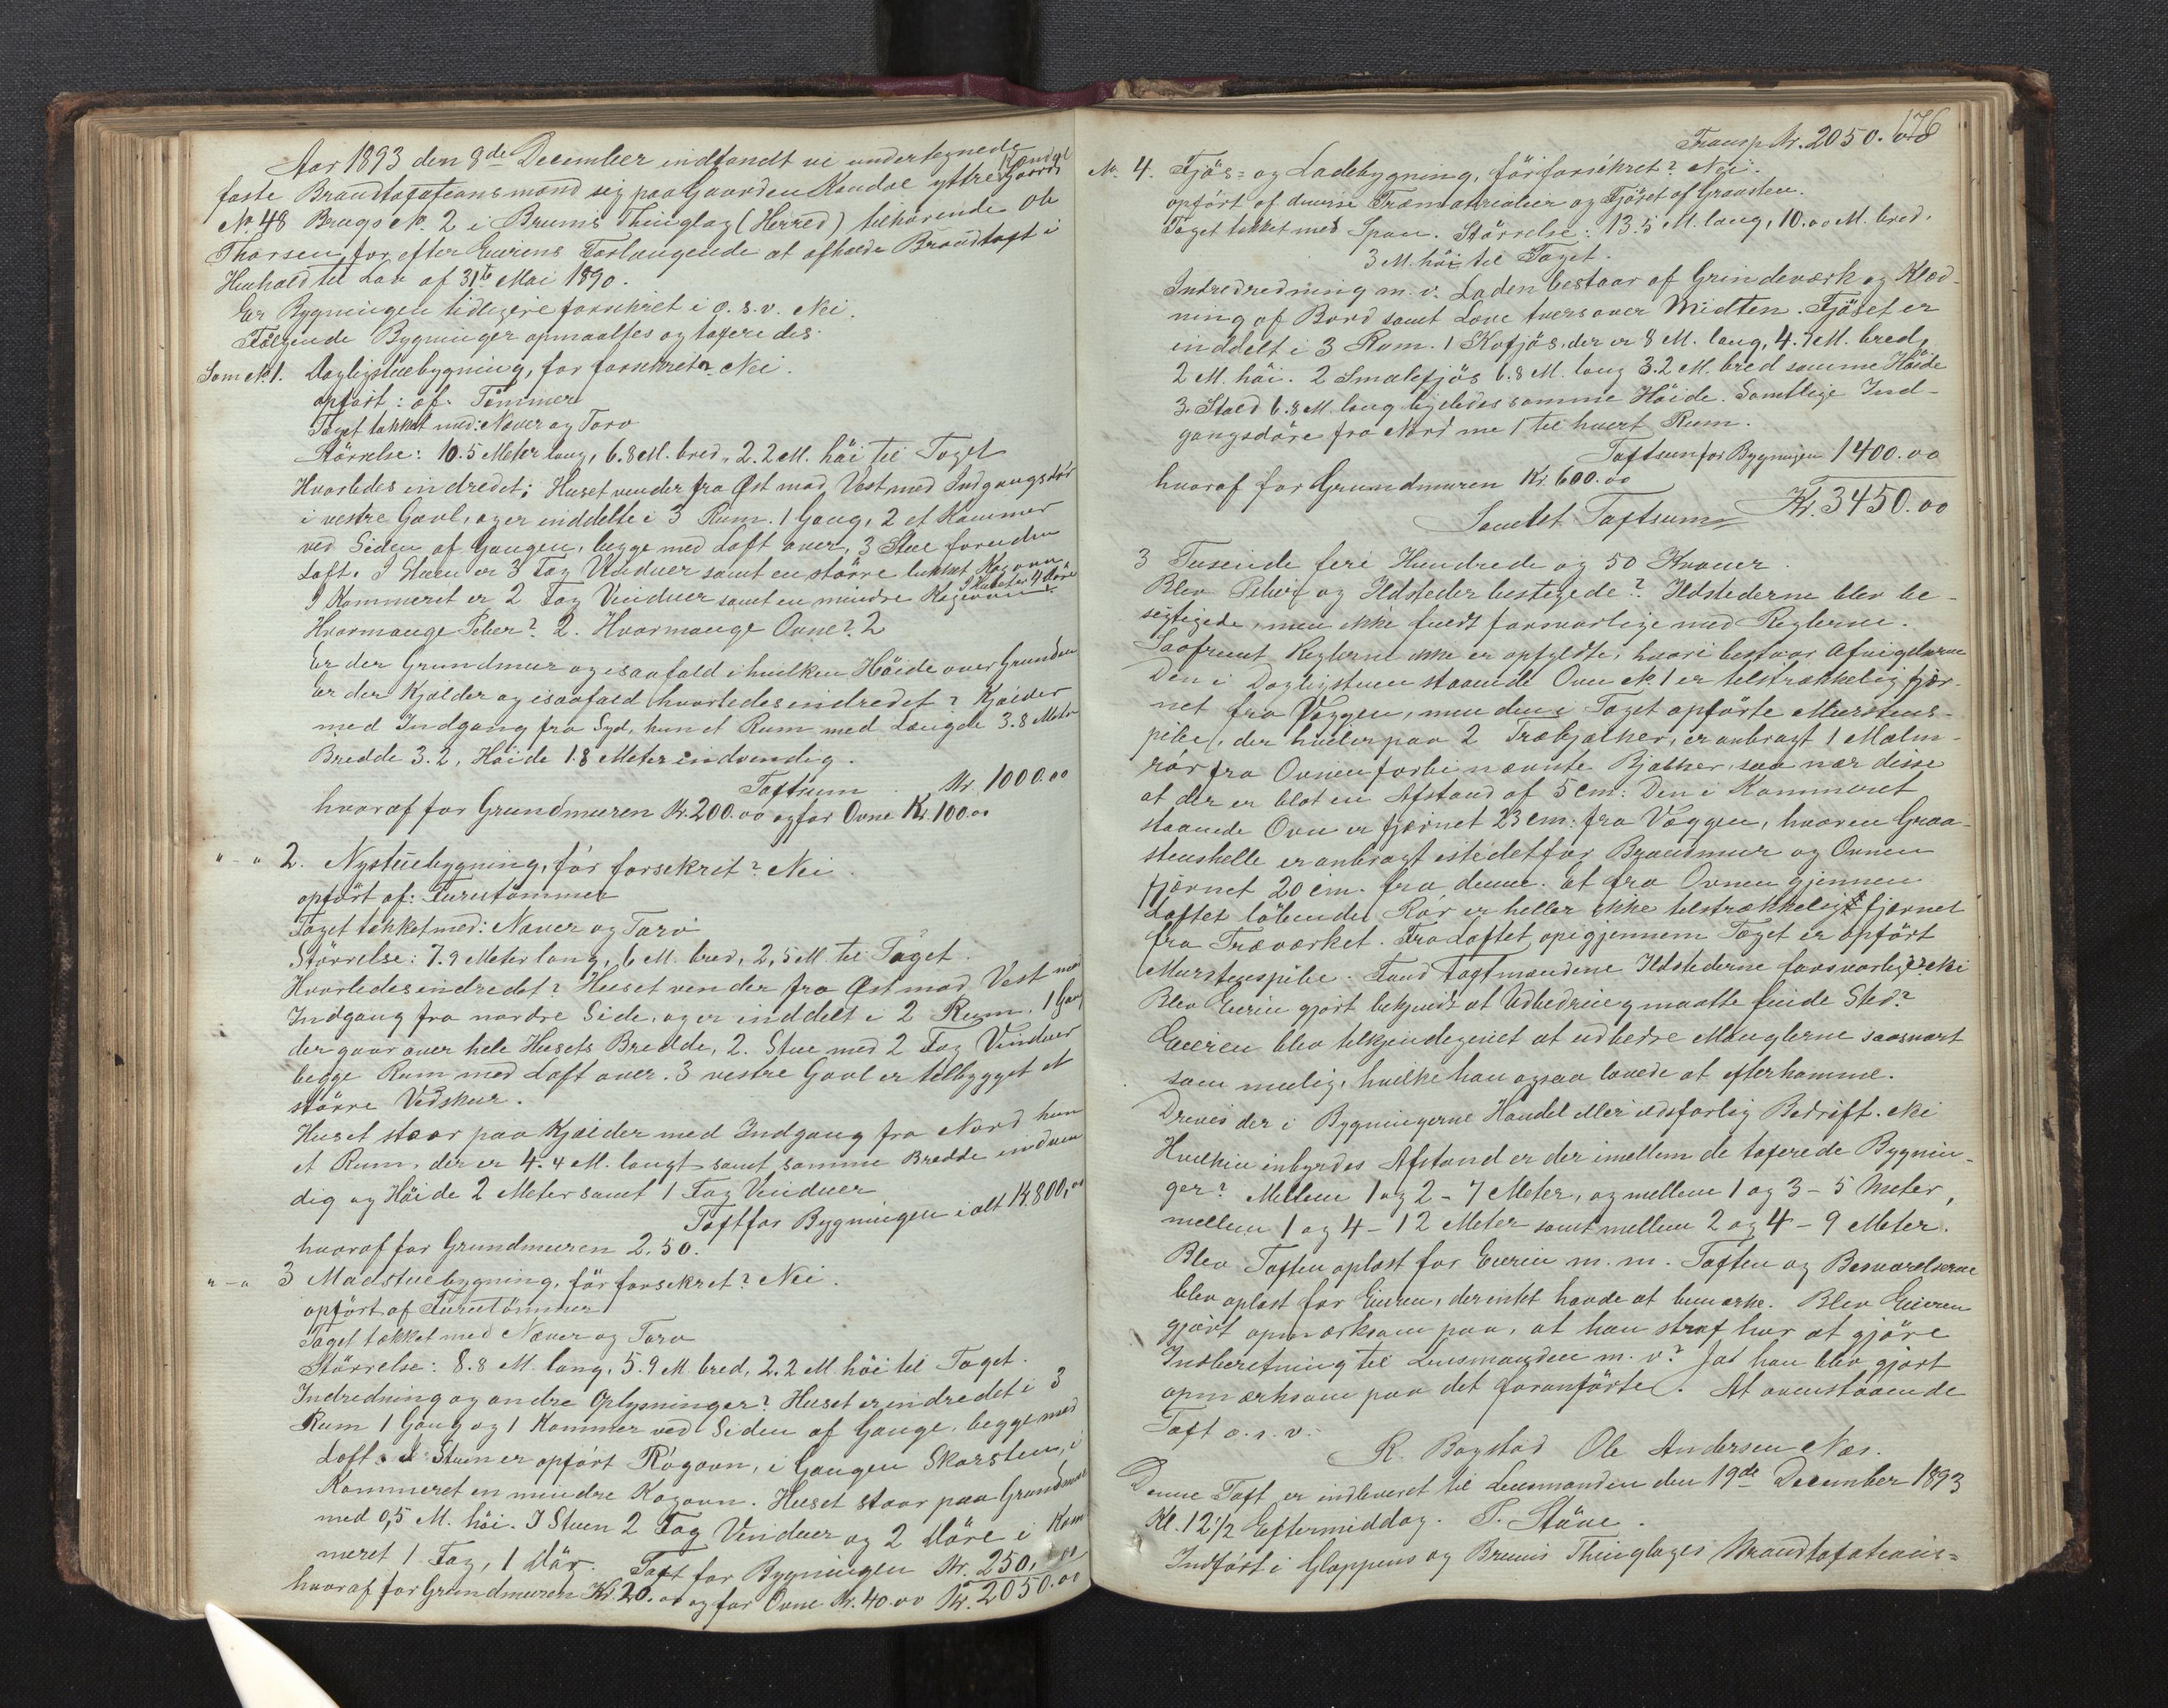 Aar 1893 den 9de December indfandt vi undertegnede
faste Brandtaxationsmænd sig paa Gaarden Kandal yttre Gaards
No. 48 Brugs No. 2 i Brums Thinglag (Herred) tilhørende Ole
Thorsen, for efter Eierens Forlangende at afholde Brandtaxt i
Henhold til Lov af 31te Mai 1890.
Er Bygningen tidligere forsikret i o. s. v. Nei.
Følgende Bygninger opmaaltes og taxeredes:
Som No. 1. Dagligstuebygning, før forsekret? Nei.
opført: af: Tømmer
Taget tækket med: Næver og Torv
Størrelse: 10.5 Meter lang, 6.8 M. bred, 2.2 M. høi til Taget
Hvorledes indredet: Huset vender fra Øst mod Vest med Indgangsdør
i vestre Gavl, og er inddelte i 3 Rum. 1 Gang, 2 et Kammer
ved Siden af Gangen, begge med Loft over, 3 Stue foruden
Loft. I Stuen er 3 Fag Vinduer samt en større lukket Kogeovn
I Huset er 4 Døre
I Kammeret er 2 Fag Vinduer samt en mindre Kogeovn.
Hvormange Piber? 2. Hvormange Ovne? 2
Er der Grundmur og isaafald i hvilken Høide over Grunden
Er der Kjælder og isaafald hvorledes indredet? Kjælder
med Indgang fra Syd, kun et Rum med Længde 3.8 Meter
Bredde 3.2, Høide 1.8 Meter indvendig.
Taxtsum . Kr. 1000.00
hvoraf for Grundmuren Kr. 200.00 og for Ovne Kr. 100.00
" - " 2. Nystuebygning, før forsekrit? Nei.
opført af: Furutømmer
Taget tækket med: Næver og Torv
Størrelse: 7.9 Meter lang, 6 M. bred, 2,5 M. til Taget.
Hvorledes indredet? Huset vender fra Øst mod Vest med
Indgang fra nordre Side, og er inddelt i 2 Rum, 1 Gang
der gaar over hele Husets Bredde, 2. Stue med 2 Fag Vinduer
begge Rum med Loft over. 3 vestre Gavl er tilbygget et
større Vedskur.
Huset staar paa Kjælder med Indgang fra Nord kun
et Rum, der er 4.4 M. langt samt samme Bredde indven
dig og Høide 2 Meter samt 1 Fag Vinduer
Taxt for Bygningen ialt Kr. 800,00
hvoraf for Grundmuren 2.50.
" - " 3 Madstuebygning, før forsekret? Nei.
opført af Furutømmer
Taget tækket med Næver og Torv
Størrelse: 8.8 M. lang, 5.9 M. bred, 2.2 M høi til Taget.
Indredning og andre Oplysninger? Huset er indredet i 3
Rum 1 Gang og 1 Kammer ved Siden af Gange, begge med
Loft. I Stuen er opført Røgovn, i Gangen Skorsten, i
Kammeret en mindre Kogovn. Huset staar paa Grundmur
med 0,5 M. høi. I Stuen 2 Fag Vinduer og 2 Døre i Kam
meret 1 Fag, 1 Dør. Taxt for Bygningen Kr. 250,00
hvoraf for Grundmuren Kr. 20.00 og for Ovne Kr. 40.00 Kr. 2050.00
176
Transp. Kr. 2050.00
No. 4. Fjøs- og Ladebygning, før forsikret? Nei.
opført af diverse Træmaterialier og Fjøset af Graasten.
Taget tækket med Spon. Størrelse: 13.5 M. lang, 10.00 M. bred,
3 M. høi til Taget.
Indredredning m. v. Laden bestaar af Grindeværk og Klæd-
ning af Bord samt Love tvers over Midten. Fjøset er
inddelt i 3 Rum. 1 Kofjøs, der er 8 M. lang, 4.7 M. bred,
2 M. høi. 2 Smalefjøs 6.8 M. lang 3.2 M. bred samme Høide
3. Stald 6.8 M. lang ligeledes samme Høide. Samtlige Ind-
gangsdøre fra Nord me 1 til hvert Rum.
Taxtsum for Bygningen 1400.00
hvoraf for Grundmuren Kr. 600.00
Samlet Taxtsum Kr. 3450.00
3 Tusende fire Hundrede og 50 Kroner.
Blev Piber og Ildsteder bestegede? Ildstederne blev be-
sigtigede, men ikke fuldt forsvarlige med Reglerne.
Saafremt Reglerne ikke er opfyldte, hvori bestaar Afvigelserne
Den i Dagligstuen staaende Ovn No. 1 er tilstrækkelig fjær-
net fra Væggen, men den i Taget opførte Murstens-
pibe, der hviler paa 2 Træbjælker, er anbragt 1 Malm-
rør fra Ovnen forbi nævnte Bjælker, saa nær disse
at der er blot en Afstand af 5 cm: Den i Kammeret
staaende Ovn er fjærnet 23 cm: fra Væggen, hvor en Graa-
stenshelle er anbragt istedetfor Brandmur og Ovnen
fjærnet 20 cm. fra denne. at fra Ovnen gjennem
Loftet løbende Rør er heller ikke tilstrækkeligt fjærnet
fra Træværket. Fra Loftet op igjennem Taget er opført
Murstenspibe. Fand Taxtmændene Ildstederne forsvarlige? Nei
Blev Eieren gjort bekjendt at Udbedring maatte finde Sted?
Eieren blev tilkjendegivet at udbedre Manglerne saasnart
som mulig, hvilke han ogsaa lovede at efterkomme.
Drives der i Bygningerne Handel eller ildsfarlig Bedrift. Nei
Hvilken inbyrdes Afstand er der imellem de taxerede Bygnin-
ger? Mellem 1 og 2 - 7 Meter, og mellem 1 og 3 - 5 Meter,
mellem 1 og 4 - 12 Meter samt mellem 2 og 4 - 9 Meter.
Blev Taxten oplæst for Eieren m. m. Taxten og Besvarelserne
blev oplæst for Eieren, der intet havde at bemærke. Blev Eieren
gjort opmærksom paa, at han straf har at gjøre
Indberetning til Lensmanden m. v? Ja! han blev gjort
opmærksom paa det foranførte. At ovenstaaende
Taxt o. s. v.
R. Bogstad Ole Andersen Næs.
Denne Taxt er indleveret til Lensmanden den 19de December 1893
Kl. 12 1/2 Eftermiddag. P. Støve.
Indført i Gloppens og Brems Thinglages Brandtaxations-